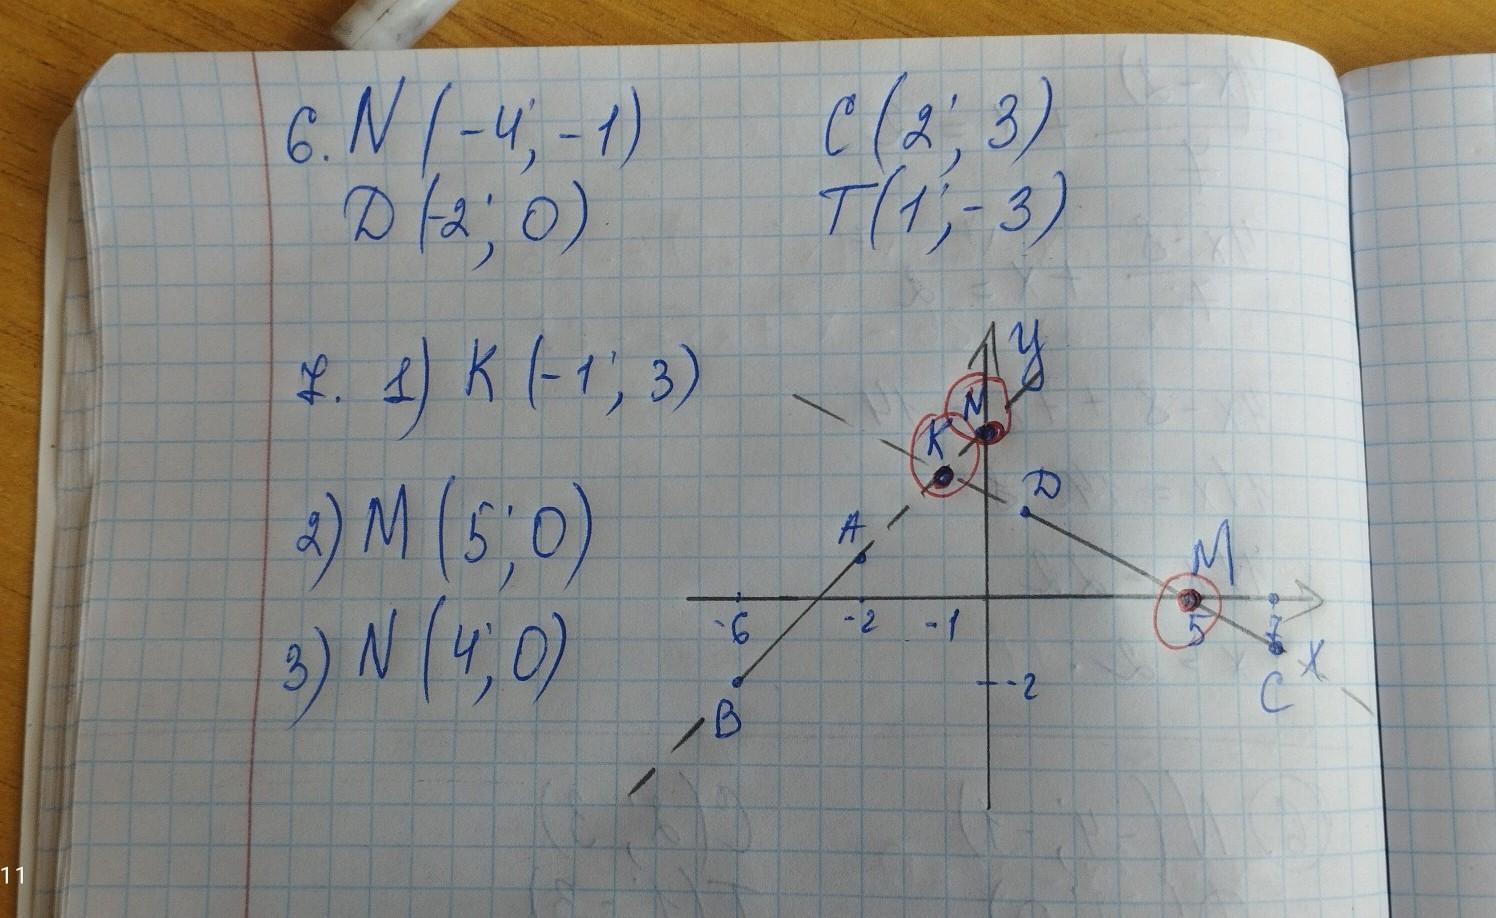 6. N (-4; -1) C (2; 3)
D (-2; 0) T (1; -3)
7. 1) K (-1; 3)
2) M (5; 0)
3) N (4; 0)
y
N
K
D
A
M
-6 -2 -1 5 7
-2
X
C
B
11